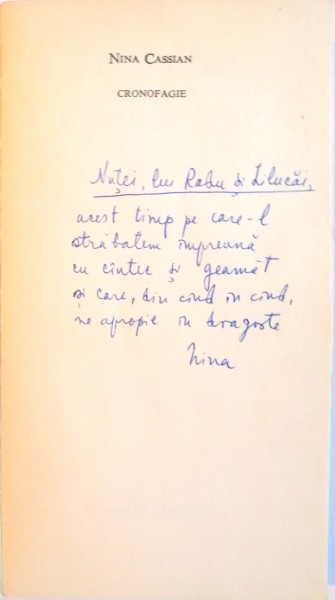 NINA CASSIAN
CRONOFAGIE
Nuței, lui Radu și Lilucăi,
acest timp pe care-l
străbatem împreună
cu cîntec și geamăt
și care, din cînd în cînd,
ne apropie în dragoste
Nina